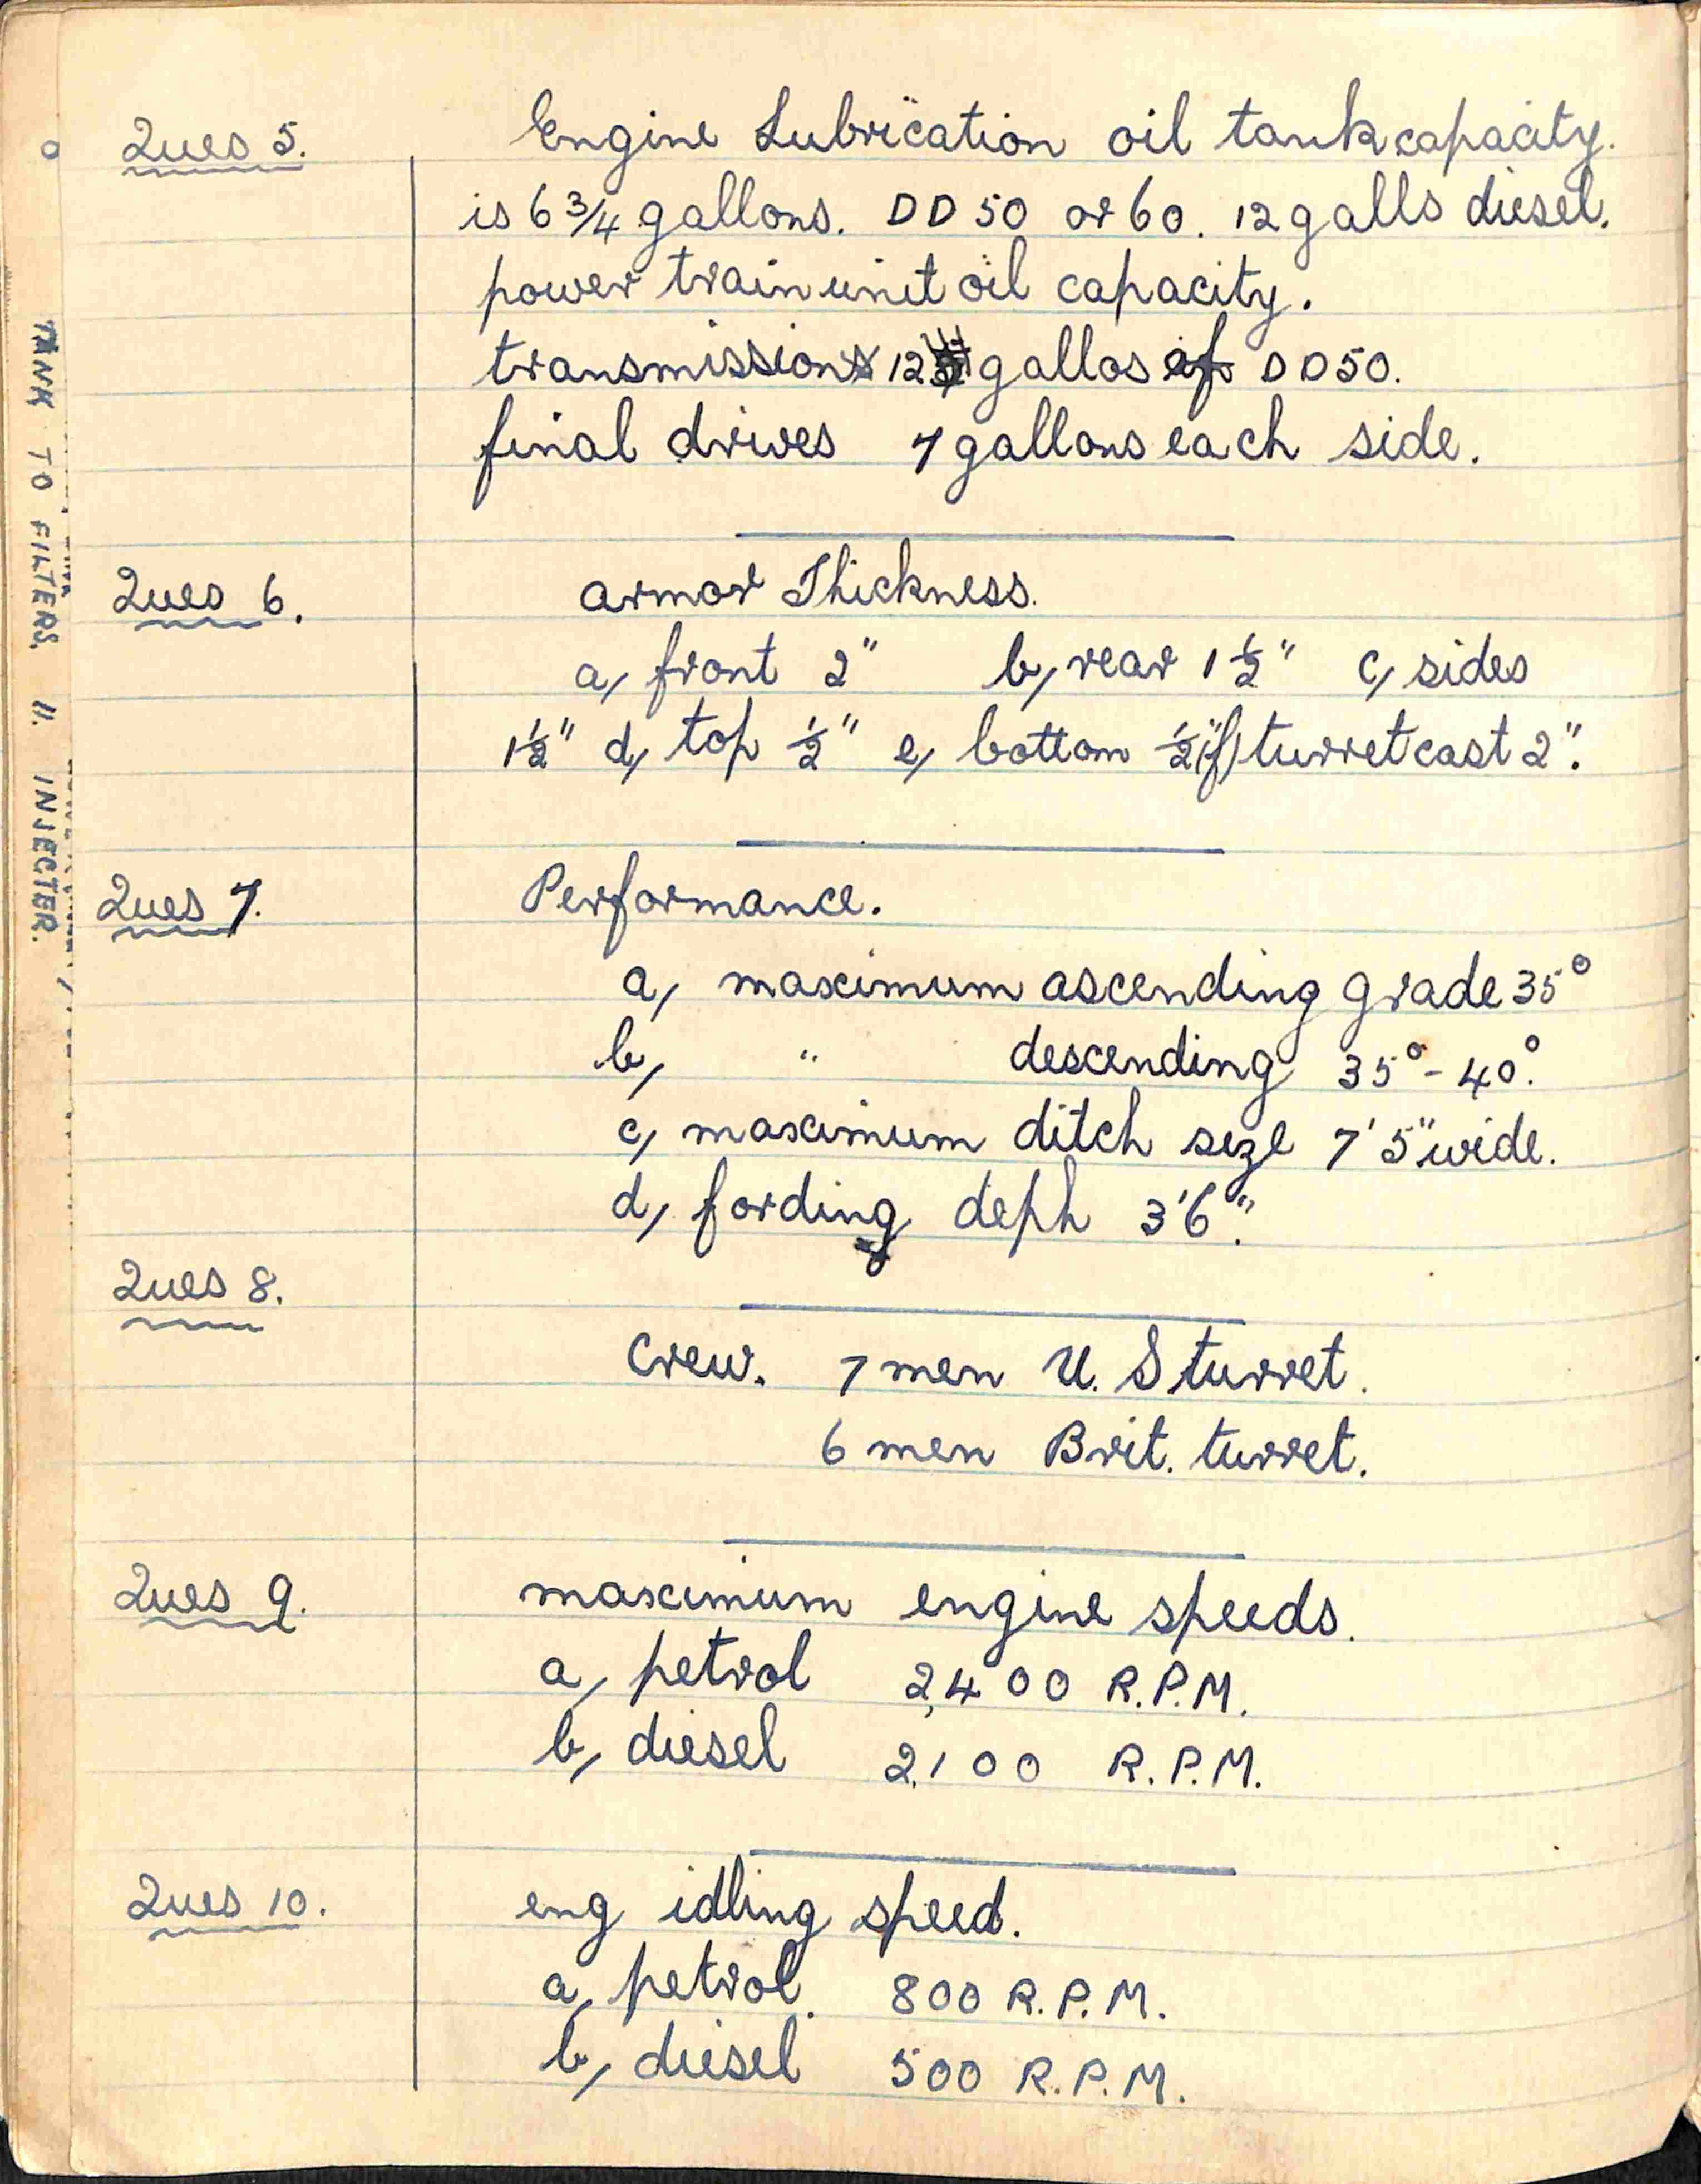 Ques 5. Engine Lubrication oil tank capacity.
is 6 3/4 gallons. DD 50 or 60. 12 galls diesel.
power train unit oil capacity.
transmission 12 gallos of DD50.
final drives 7 gallons each side.
Ques 6. armor Thickness.
a, front 2" b, rear 1 1/2" c, sides
1 1/2" d, top 1/2" e, bottom 1/2" (f) turret cast 2".
Ques 7. Performance.
a, maximum ascending grade 35°
b, " descending 35° - 40°.
c, maximum ditch seze 7' 5" wide.
d, fording deph 3'6".
Ques 8.
Crew. 7 men U. S turret.
6 men Brit. turret.
Ques 9. maximum engine speeds.
a, petrol 2,400 R.P.M.
b, diesel 2,100 R.P.M.
Ques 10. eng idling speed.
a, petrol. 800 R.P.M.
b, diesel 500 R.P.M.
TANK TO FILTERS. ". INJECTER.